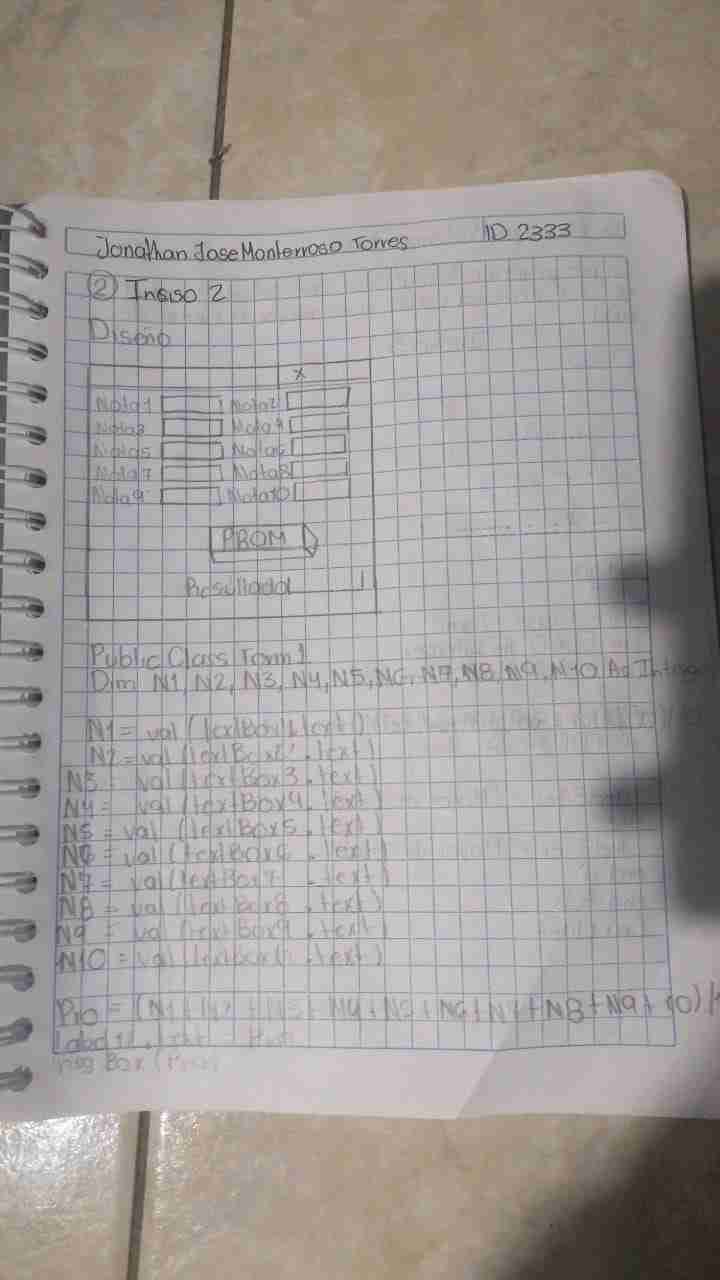 Jonathan Jose Monterroso Torres ID 2333
② Insiso 2
Diseño
X
Nota1 Nota2
Nota3 Nota4
Nota5 Nota6
Nota7 Nota8
Nota9 Nota10
PROM
Resultado
Public Class Form1
Dim N1, N2, N3, N4, N5, N6, N7, N8, N9, N10 As
N1 = val (textBox1.text)
N2 = val (textBox2.text)
N3 = val (textBox3.text)
N4 = val (textBox4.text)
N5 = val (textBox5.text)
N6 = val (textBox6.text)
N7 = val (textBox7.text)
N8 = val (textBox8.text)
N9 = val (textBox9.text)
N10 = val (textBox .text)
Pro = (N1 + N2 + N3 + N4 + N5 + N6 + N7 + N8 + N9 + 10) /
Box (